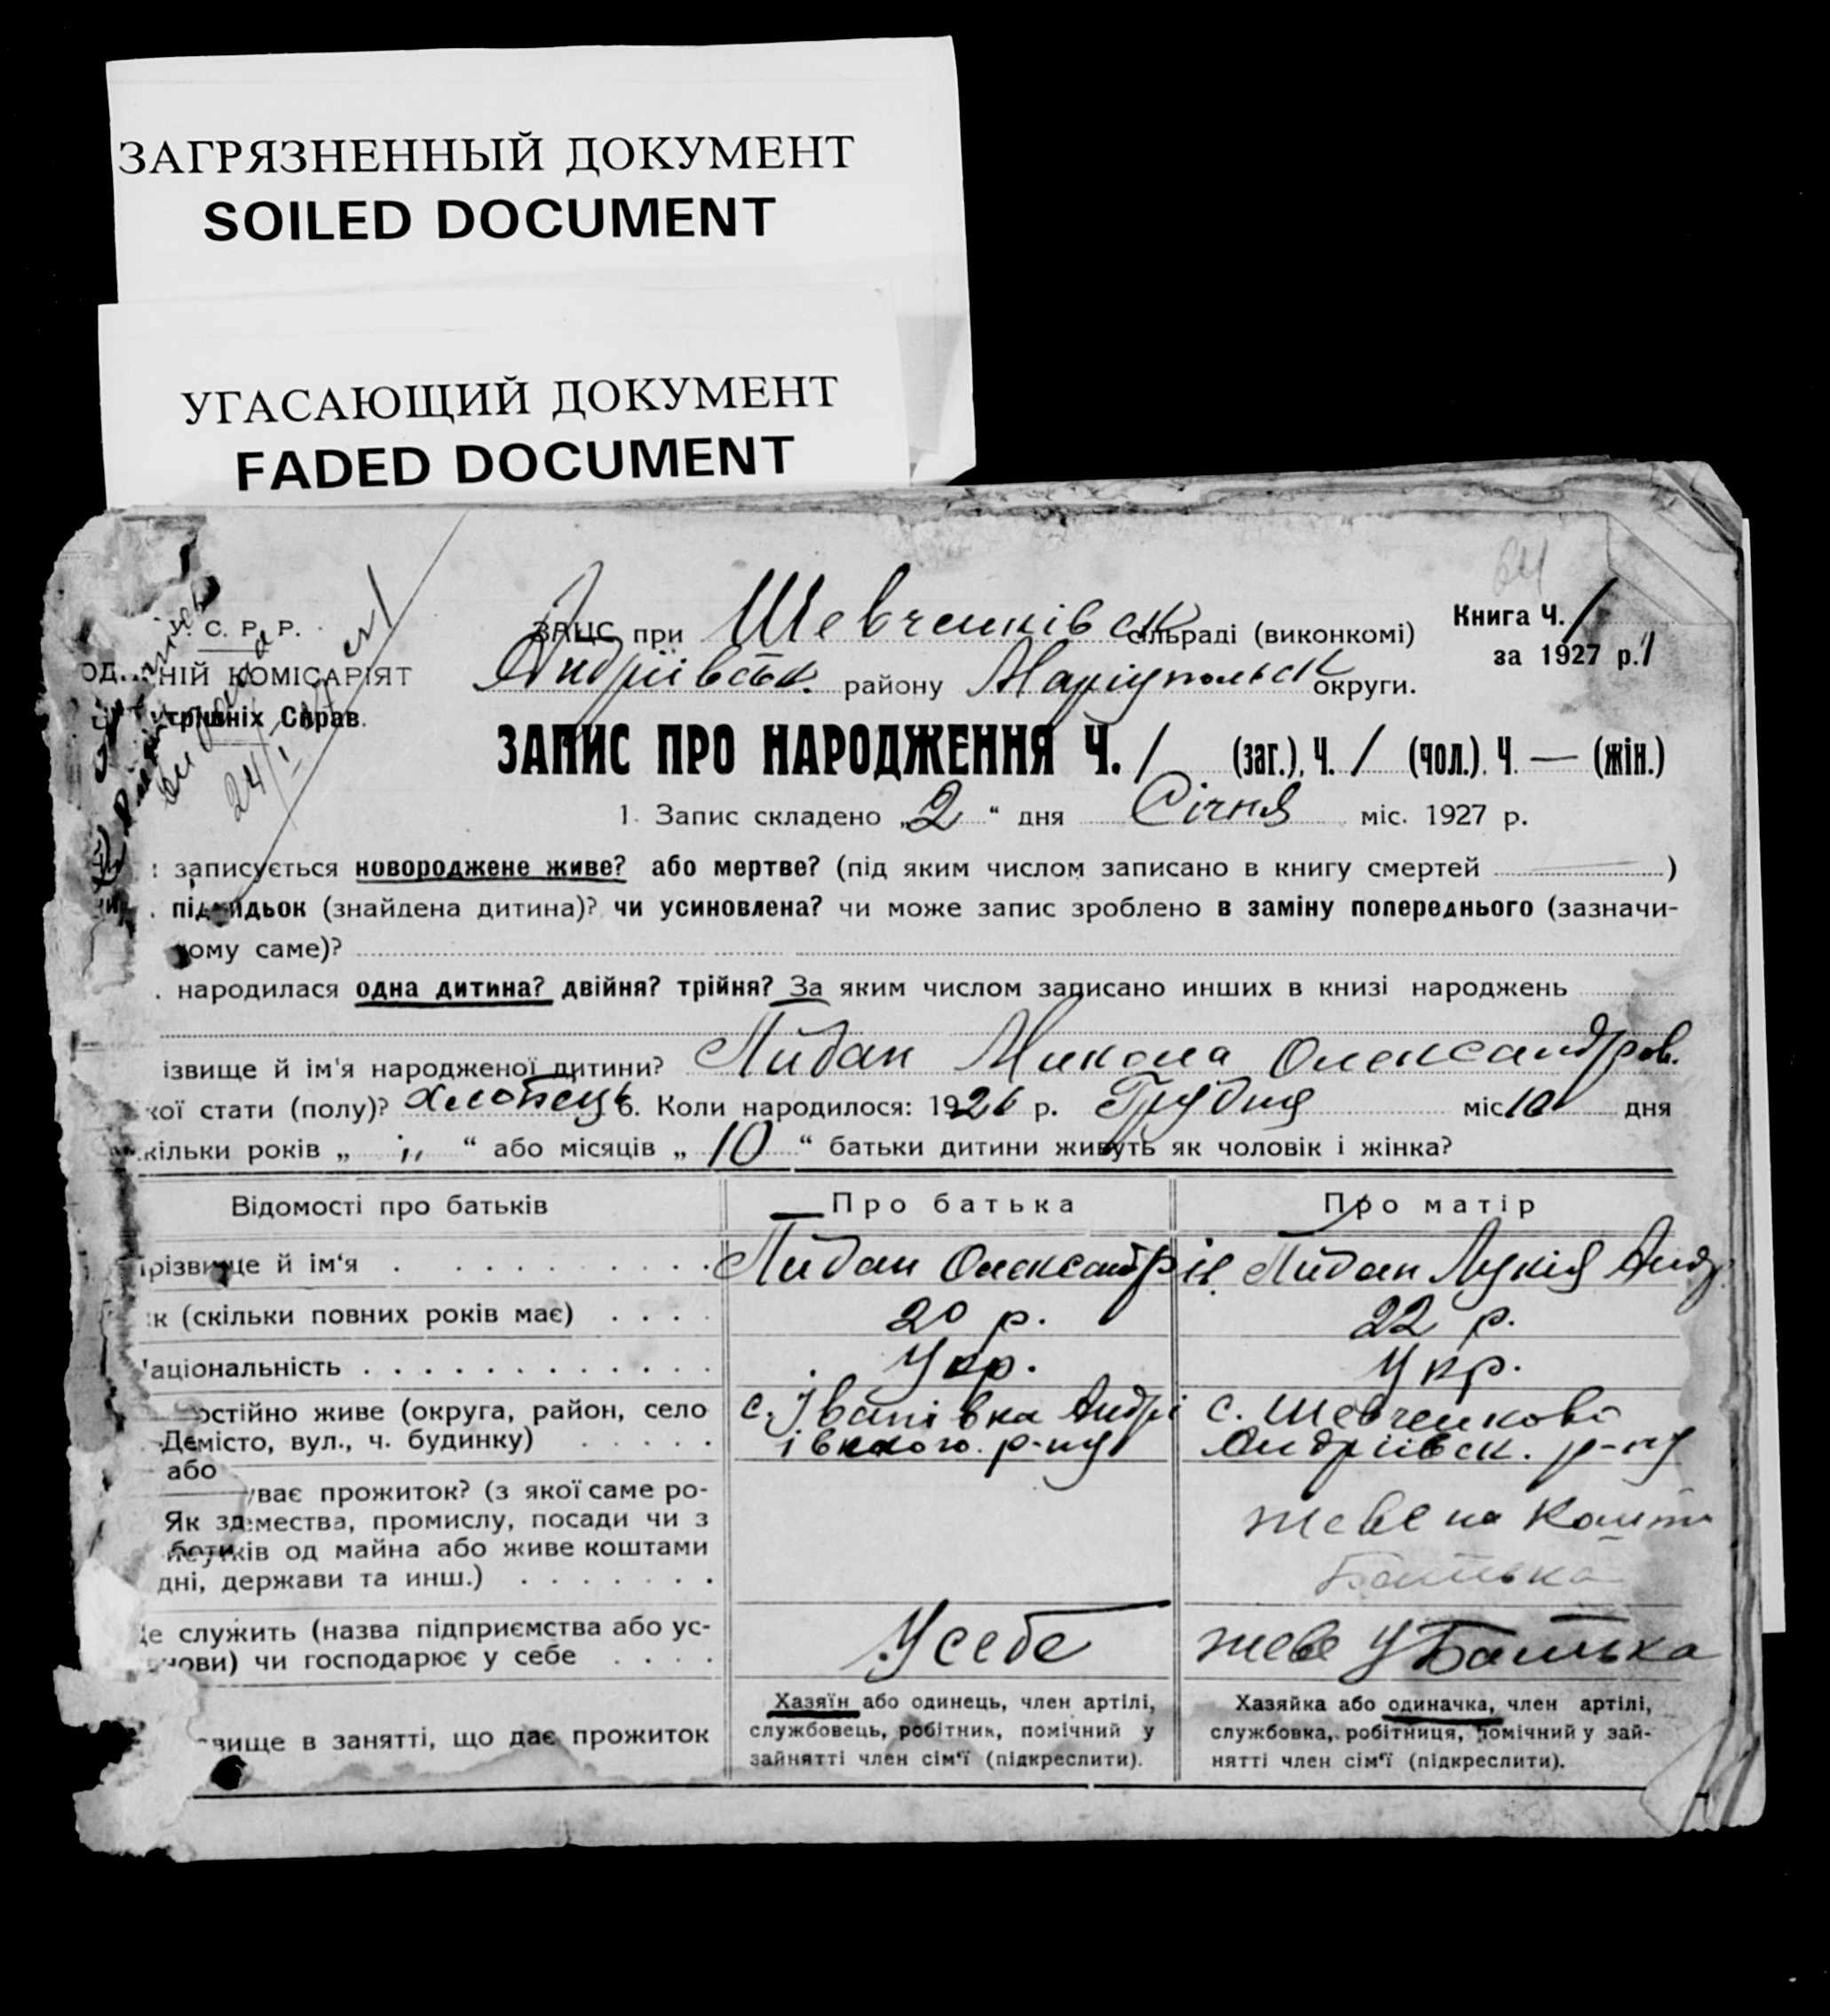 ЗАГРЯЗНЕННЫЙ ДОКУМЕНТ
SOILED DOCUMENT
УГАСАЮЩИЙ ДОКУМЕНТ
FADED DOCUMENT
64
У. С. Р. Р.
НІЙ КОМІСАРІЯТ
трішніх Справ.
24/I
ЗАЦС при Шевченківск сільраді (виконкомі)
Андріївськ. району Маріупольск округи.
Книга Ч. 1
за 1927 р.
ЗАПИС ПРО НАРОДЖЕННЯ Ч. 1 (заг.), Ч. 1 (чол.). Ч. — (жін.)
1. Запис складено „2“ дня Січня міс. 1927 р.
: записується новороджене живе? або мертве? (під яким числом записано в книгу смертей )
. підкидьок (знайдена дитина)? чи усиновлена? чи може запис зроблено в заміну попереднього (зазначи-
кому саме)?
. народилася одна дитина? двійня? трійня? За яким числом записано инших в книзі народжень
ізвище й ім'я народженої дитини? Лидан Микола Олександров.
кої стати (полу)? Хлопець 6. Коли народилося: 1926 р. Грудня міс 10 дня
кільки років „ „ “ або місяців „ 10 “ батьки дитини живуть як чоловік і жінка?
Відомості про батьків
Про батька
Про матір
різвище й ім'я
Лидан Олександр
Лидан Лукія Андр.
ік (скільки повних років має)
20 р.
22 р.
Національність
Укр.
Укр.
остійно живе (округа, район, село
Демісто, вул., ч. будинку)
с. Іванівка Андрі
івского р-ну
с. Шевченково
Андріівск. р-ну
або
ває прожиток? (з якої саме ро-
Як здемества, промислу, посади чи з
боти
ків од майна або живе коштами
дні, держави та инш.)
живе на кошти
Батька
Де служить (назва підприємства або ус-
нови) чи господарює у себе
У себе
живе У Батька
вище в занятті, що дає прожиток
Хазяїн або одинець, член артілі,
службовець, робітник, помічний у
зайнятті член сім'ї (підкреслити).
Хазяйка або одиначка, член артілі,
службовка, робітниця, помічний у зай-
нятті член сім'ї (підкреслити).